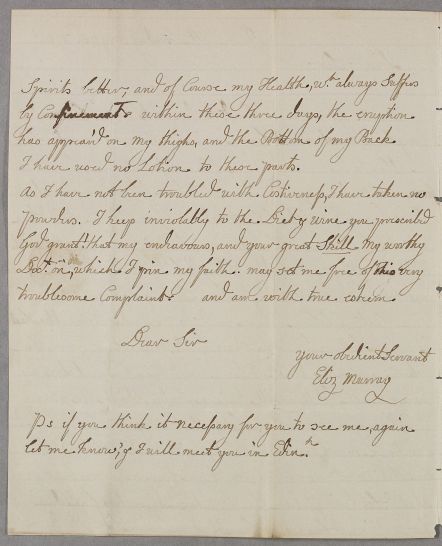 Spirits better, and of Course my Health, wch. always suffers
by Confinement. within these three days, the eruption
has appear'd on my thighs, and the Bottm of my Back
I have used no Lotion to these parts.
As I have not been troubled with Costiveness, I have taken no
powders. I keep inviolably to the Diet & Wine you prescrib'd
God grant! that my endeavours, and your great Skill my worthy
Doct. on which I pin my faith. may set me free of this very
troublesome Complaint. and am with true esteem
Dear Sir
your obedient Servant
Eliz Murray
Ps if you think it necessary for you to see me, again
let me know, & I will meet you in Edinh.